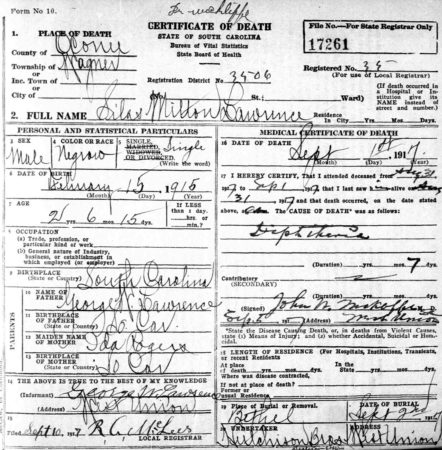 Form No 10.
CERTIFICATE OF DEATH
STATE OF SOUTH CAROLINA
Bureau of Vital Statistics
State Board of Health
File No.—For State Registrar Only
17261
1. PLACE OF DEATH
County of Oconee
Township of Wagner
or
Inc. Town of
or
City of
Registration District No. 3506
Registered No. 35
(For use of Local Registrar)
(If death occurred in a Hospital or Institution give its NAME instead of street and number.)
St.; Ward)
2. FULL NAME Silas Mitton Lawrence
Residence In City Yrs. Mos. Days
PERSONAL AND STATISTICAL PARTICULARS
3 SEX Male
4 COLOR OR RACE Negro
5 SINGLE, MARRIED, WIDOWED, OR DIVORCED. Single
(Write the word)
6 DATE OF BIRTH
February 15 1915
(Month) (Day) (Year)
7 AGE
2 yrs. 6 mos. 15 days
If LESS than 1 day, hrs or min.?
8 OCCUPATION
(a) Trade, profession, or particular kind of work
(b) General nature of Industry, business, or establishment in which employed (or employer)
9 BIRTHPLACE
(State or Country) South Carolina
PARENTS
10 NAME OF FATHER George W. Lawrence
11 BIRTHPLACE OF FATHER
(State or Country) So Car.
12 MAIDEN NAME OF MOTHER Ida
13 BIRTHPLACE OF MOTHER
(State or Country) So Car
14 THE ABOVE IS TRUE TO THE BEST OF MY KNOWLEDGE
(Informant) George W Lawrence
(Address) West Union
15 Filed Sept 10, 1917
LOCAL REGISTRAR
MEDICAL CERTIFICATE OF DEATH
16 DATE OF DEATH
Sept 1st 1917
(Month) (Day) (Year)
17 I HEREBY CERTIFY, That I attended deceased from Aug 31
1917 to Sep 1 1917 that I last saw h alive on Aug
31 1917 and that death occurred, on the date stated
above, at m. The CAUSE OF DEATH was as follows:
Diphtheria
(Duration) yrs. mos. 7 ds.
Contributory
(SECONDARY)
(Duration) yrs. mos. ds.
(Signed) John W.
(Address)
*State the Disease Causing Death, or, in deaths from Violent Causes, state (1) Means of Injury; and (2) whether Accidental, Suicidal or Homicidal.
18 LENGTH OF RESIDENCE (For Hospitals, Institutions, Transients, or recent Residents
At place of death yrs. mos. ds. In the State yrs. mos. ds.
Where was disease contracted,
If not at place of death?
Former or usual residence
19 Place of Burial or Removal
Bethel
DATE OF BURIAL
Sept 2nd 1917
20 UNDERTAKER
Hutchinson Bros
(Address)
West Union